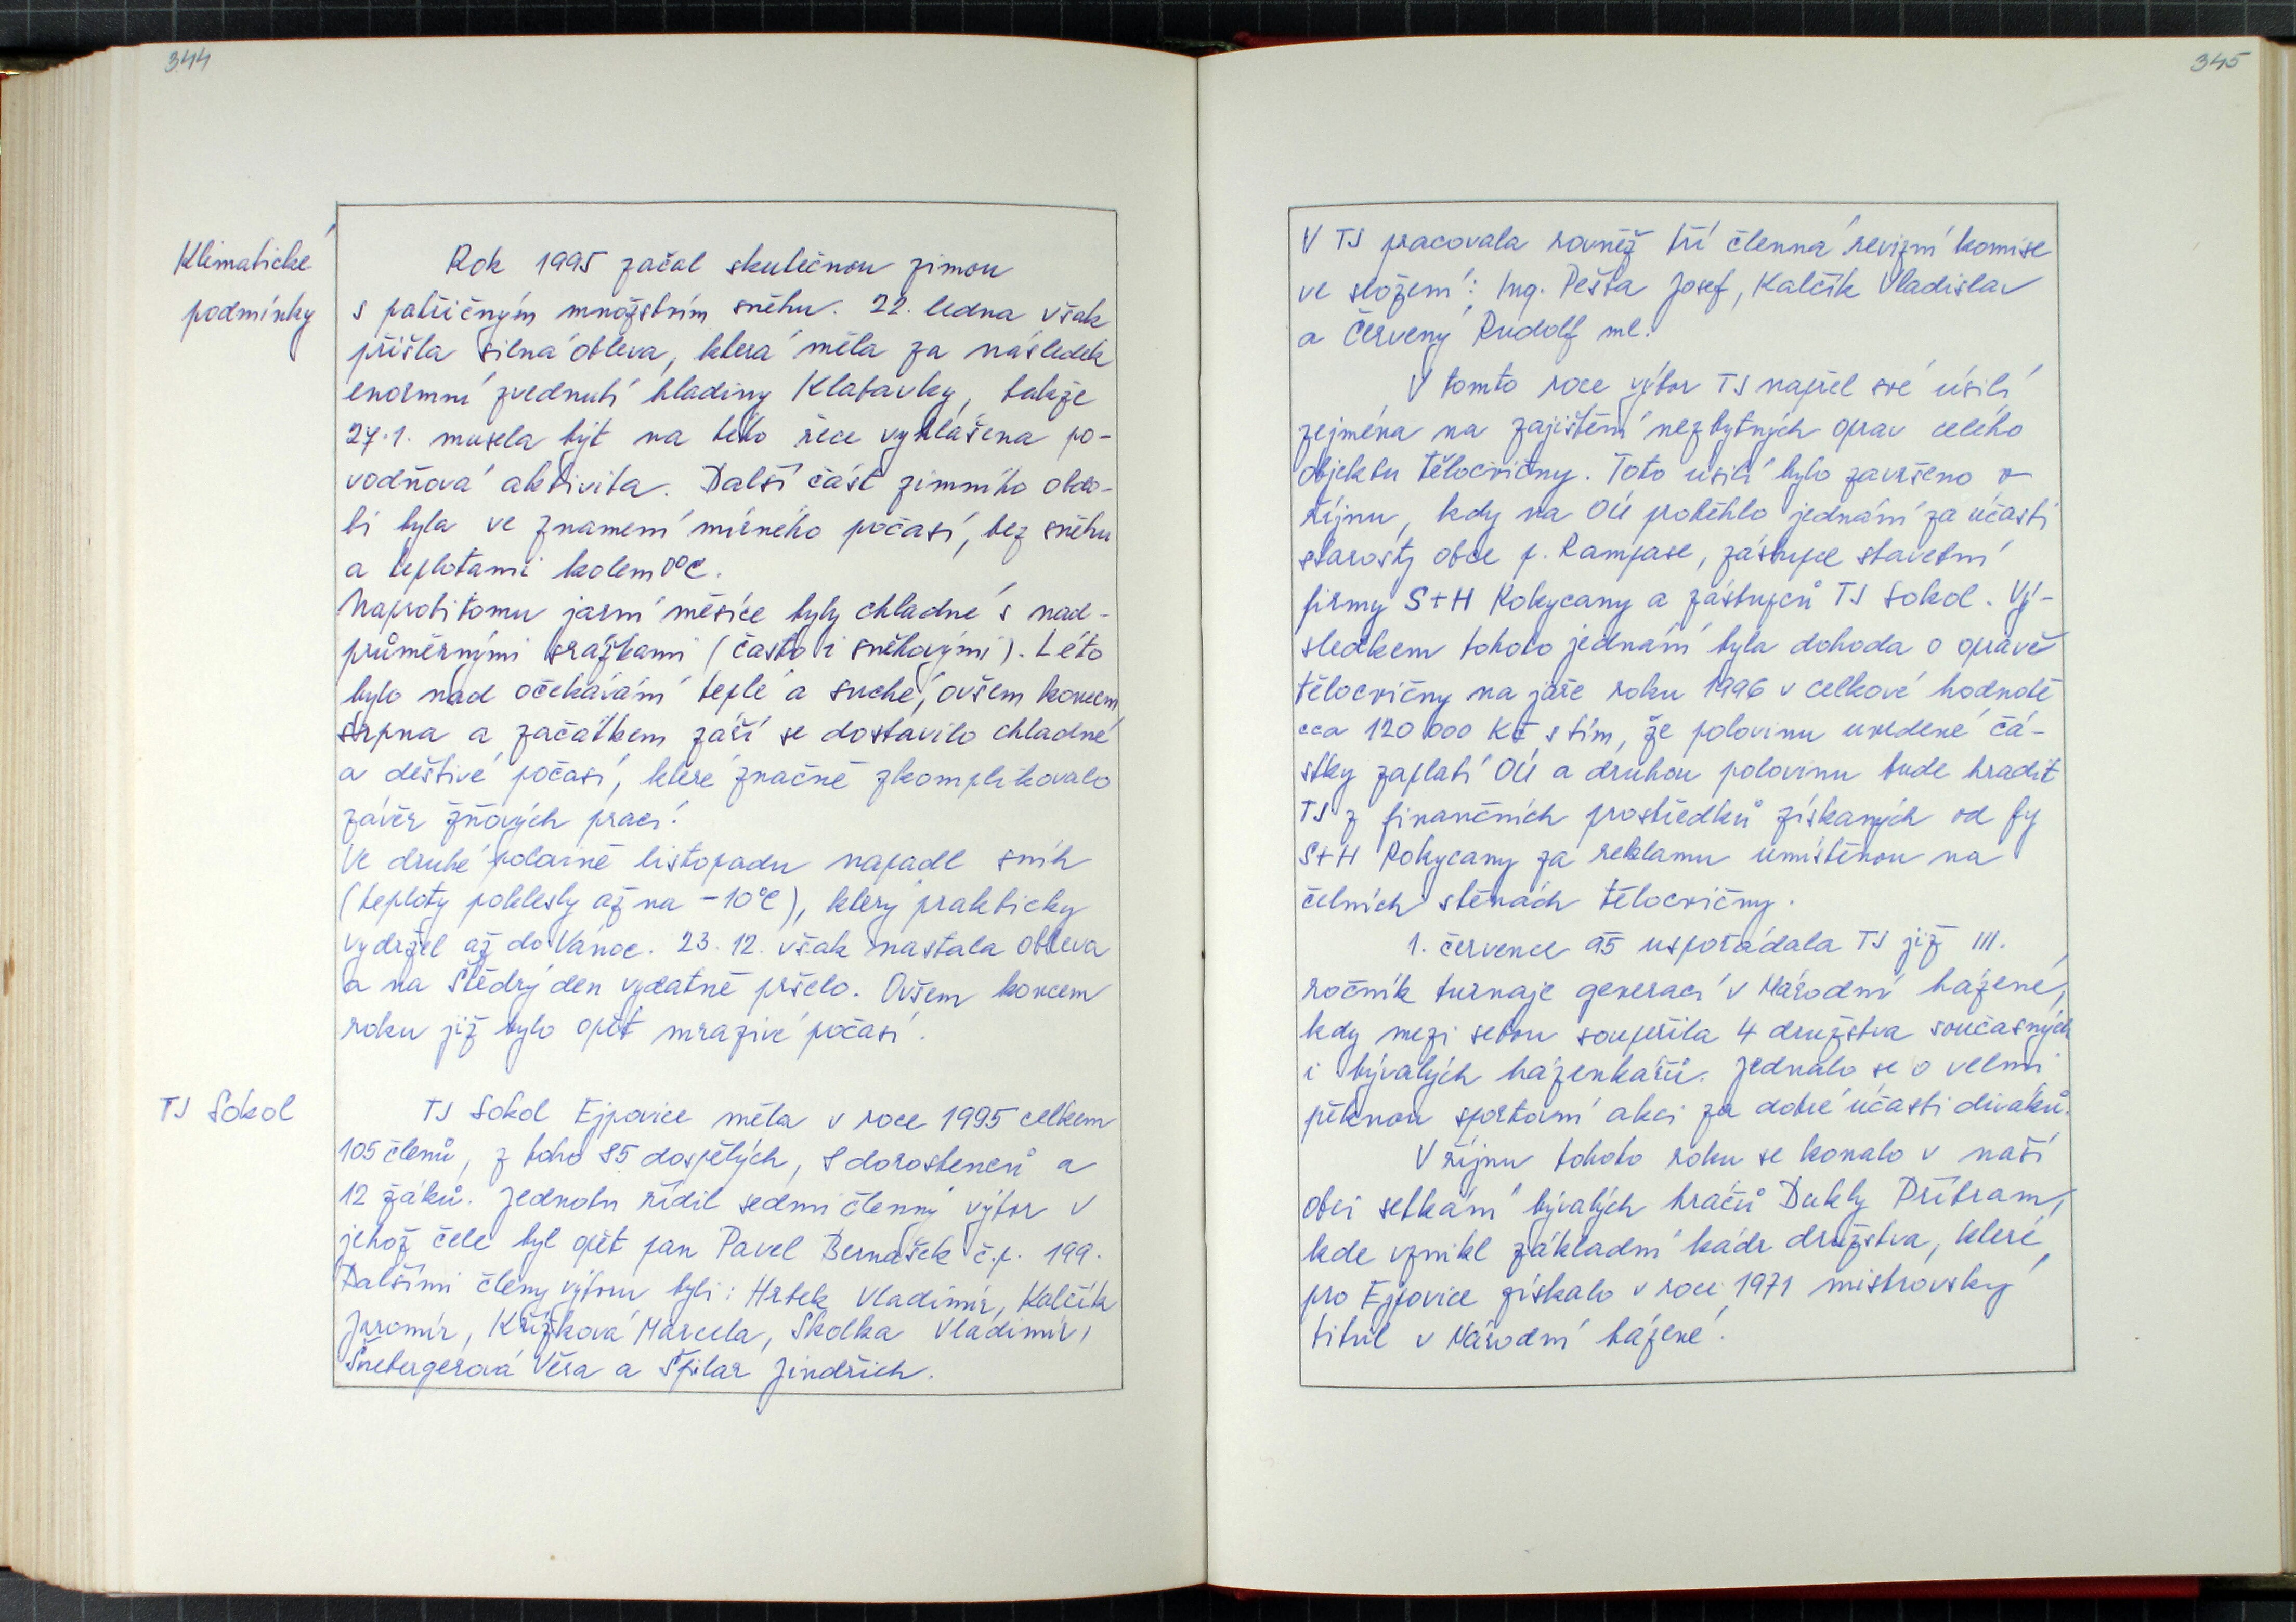 344
Klimatické
podmínky
Rok 1995 začal skutečnou zimou
s patřičným množstvím sněhu. 22. ledna však
přišla silná obleva, která měla za následek
enormní zvednutí hladiny Klabavky, takže
27.1. musela být na této řece vyhlášena po-
vodňová aktivita. Další část zimního obdo-
bí byla ve znamení mírného počasí, bez sněhu
a teplotami kolem 0°C.
Naprotitomu jarní měsíce byly chladné s nad-
průměrnými srážkami (často i sněhovými). Léto
bylo nad očekávání teplé a suché, ovšem koncem
srpna a začátkem září se dostavilo chladné
a deštivé počasí, které značně zkomplikovalo
závěr žňových prací.
Ve druhé polovině listopadu napadl sníh
(teploty poklesly až na -10°C), který prakticky
vydržel až do Vánoc. 23.12. však nastala obleva
a na Štědrý den vydatně pršelo. Ovšem koncem
roku již bylo opět mrazivé počasí.
TJ Sokol
TJ Sokol Ejpovice měla v roce 1995 celkem
105 členů, z toho 85 dospělých, 8 dorostenců a
12 žáků. Jednotu řídil sedmi členný výbor v
jehož čele byl opět pan Pavel Bernašek č.p. 199.
Dalšími členy výboru byli: Hrbek Vladimír, Kalčík
Jaromír, Křížková Marcela, Skolka Vladimír,
Šnebergerová Věra a Špilar Jindřich.
345
V TJ pracovala rovněž tří členná revizní komise
ve složení: Ing. Pešta Josef, Kalčík Vladislav
a Červený Rudolf ml.
V tomto roce výbor TJ napřel své úsilí
zejména na zajištění nezbytných oprav celého
objektu tělocvičny. Toto úsilí bylo završeno v
říjnu, kdy na OÚ proběhlo jednání za účasti
starosty obce p. Rampase, zástupce stavební
firmy S+H Rokycany a zástupců TJ Sokol. Vý-
sledkem tohoto jednání byla dohoda o opravě
tělocvičny na jaře roku 1996 v celkové hodnotě
cca 120 000 Kč s tím, že polovinu uvedené čá-
stky zaplatí OÚ a druhou polovinu bude hradit
TJ z finančních prostředků získaných od fy
S+H Rokycany za reklamu umístěnou na
čelních stěnách tělocvičny.
1. července 95 uspořádala TJ již III.
ročník turnaje generací v Národní házené,
kdy mezi sebou soupeřila 4 družstva současných
i bývalých házenkářů. Jednalo se o velmi
pěknou sportovní akci za dobré účasti diváků.
V říjnu tohoto roku se konalo v naší
obci setkání bývalých hráčů Dukly Příbram,
kde vznikl základní kádr družstva, které
pro Ejpovice získalo v roce 1971 mistrovský
titul v Národní házené.